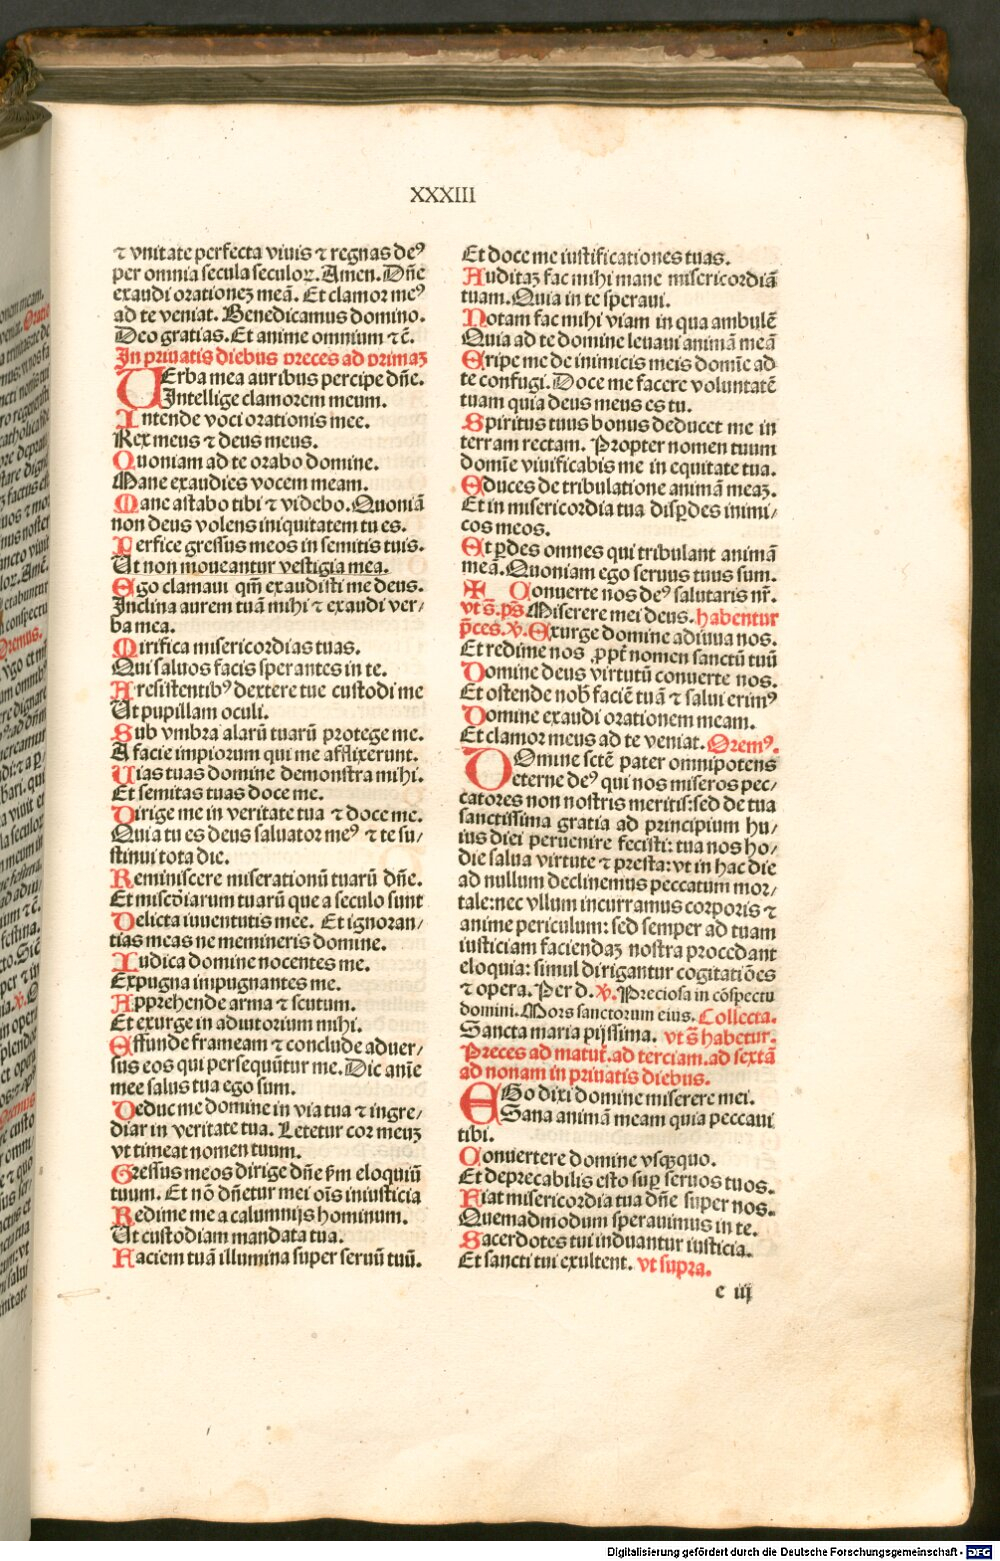 XXXIII
⁊ vnitate perfecta viuis ⁊ regnas deꝰ
per omnia secula seculoꝝ. Amen. Dn̄e
exaudi orationeꝫ meā. Et clamor meꝰ
ad te veniat. Benedicamus domino.
Deo gratias. Et anime omnium ⁊ c̄.
In priuatis diebus preces ad primaꝫ
VErba mea auribus percipe dn̄e.
Intellige clamorem meum.
Intende voci orationis mee.
Rex meus ⁊ deus meus.
Quoniam ad te orabo domine.
Mane exaudies vocem meam.
Mane astabo tibi ⁊ videbo. Quoniā
non deus volens iniquitatem tu es.
Perfice gressus meos in semitis tuis.
Ut non moueantur vestigia mea.
Ego clamaui qm̄ exaudisti me deus.
Inclina aurem tuā mihi ⁊ exaudi ver/
ba mea.
Mirifica misericordias tuas.
Qui saluos facis sperantes in te.
A resistentibꝰ dextere tue custodi me
Ut pupillam oculi.
Sub vmbra alarū tuarū protege me.
A facie impiorum qui me afflixerunt.
Uias tuas domine demonstra mihi.
Et semitas tuas doce me.
Dirige me in veritate tua ⁊ doce me.
Quia tu es deus saluator meꝰ ⁊ te su/
stinui tota die.
Reminiscere miserationū tuarū dn̄e.
Et misc̄diarum tuarū que a seculo sunt
Delicta iuuentutis mee. Et ignoran/
tias meas ne memineris domine.
Iudica domine nocentes me.
Expugna impugnantes me.
Apprehende arma ⁊ scutum.
Et exurge in adiutorium mihi.
Effunde frameam ⁊ conclude aduer/
sus eos qui persequūtur me. Dic anīe
mee salus tua ego sum.
Deduc me domine in via tua ⁊ ingre/
diar in veritate tua. Letetur cor meuꝫ
vt timeat nomen tuum.
Gressus meos dirige dn̄e ẜm eloquiū
tuum. Et nō dn̄etur mei oīs iniusticia
Redime me a calumnijs hominum.
Ut custodiam mandata tua.
Faciem tuā illumina super seruū tuū.
Et doce me iustificationes tuas.
Auditaꝫ fac mihi mane misericordiā
tuam. Quia in te speraui.
Notam fac mihi viam in qua ambulē
Quia ad te domine leuaui animā meā
Eripe me de inimicis meis domīe ad
te confugi. Doce me facere voluntatē
tuam quia deus meus es tu.
Spiritus tuus bonus deducet me in
terram rectam. Propter nomen tuum
domīe viuificabis me in equitate tua.
Educes de tribulatione animā meaꝫ.
Et in misericordia tua disꝑdes inimi/
cos meos.
Et ꝑdes omnes qui tribulant animā
meā. Quoniam ego seruus tuus sum.
✠ Conuerte nos deꝰ salutaris nr̄.
vt s̄. ps̄ Miserere mei deus. habentur
p̄ces. ꝟ. Exurge domine adiuua nos.
Et redime nos ꝓpt̄ nomen sanctū tuū
Domine deus virtutū conuerte nos.
Et ostende nob̄ faciē tuā ⁊ salui erimꝰ
Domine exaudi orationem meam.
Et clamor meus ad te veniat. Oremꝰ.
DOmine sctē pater omnipotens
eterne deꝰ qui nos miseros pec/
catores non nostris meritis: sed de tua
sanctissima gratia ad principium hu/
ius diei peruenire fecisti: tua nos ho/
die salua virtute ⁊ presta: vt in hac die
ad nullum declinemus peccatum mor/
tale: nec vllum incurramus corporis ⁊
anime periculum: sed semper ad tuam
iusticiam faciendaꝫ nostra procedant
eloquia: simul dirigantur cogitatiōes
⁊ opera. Per d. ꝟ. Preciosa in cōspectu
domini. Mors sanctorum eius. Collecta.
Sancta maria pijssima. vt s̄ habetur.
Preces ad matut̄. ad terciam. ad sextā
ad nonam in priuatis diebus.
EGo dixi domine miserere mei.
Sana animā meam quia peccaui
tibi.
Conuertere domine vsqꝫquo.
Et deprecabilis esto suꝑ seruos tuos.
Fiat misericordia tua dn̄e super nos.
Quemadmodum sperauimus in te.
Sacerdotes tui induantur iusticia.
Et sancti tui exultent. vt supra.
e iij
Digitalisierung gefördert durch die Deutsche Forschungsgemeinschaft - DFG